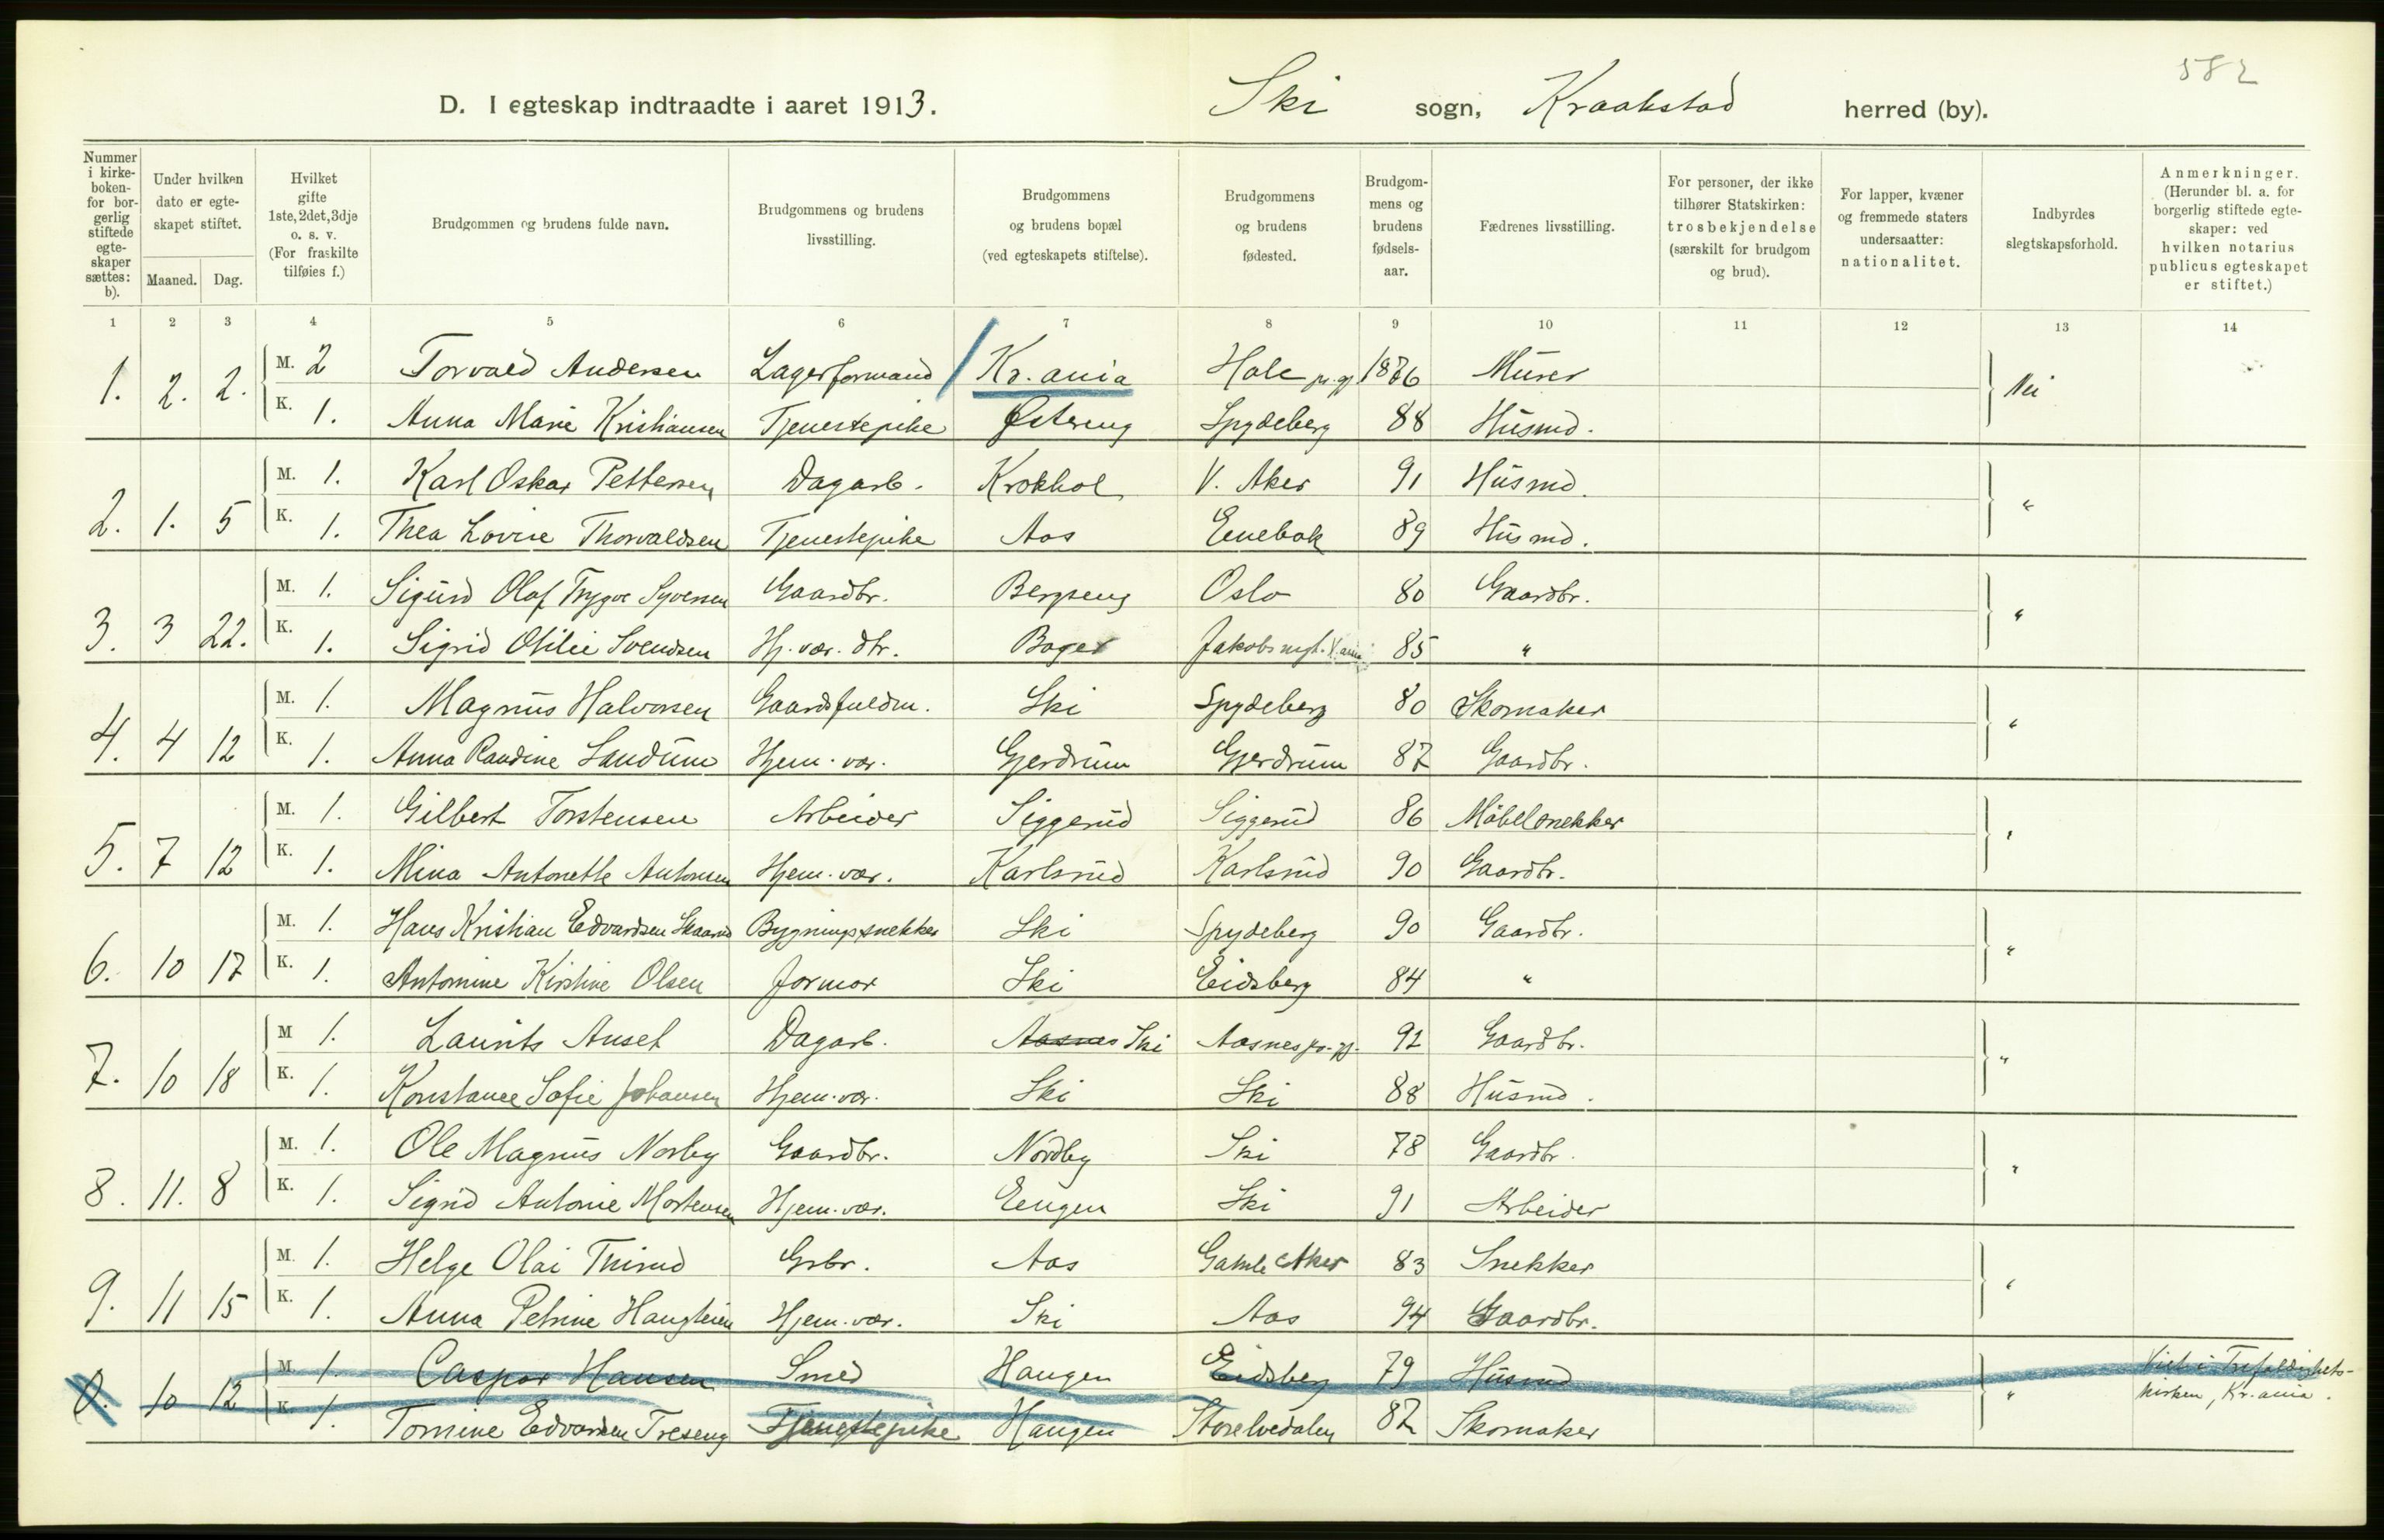 582
D. I egteskap indtraadte i aaret 1913. Ski sogn, Kraakstad herred (by).
Nummer i kirke-boken- for bor-gerlig stiftede egte-skaper sættes: b).
Under hvilken dato er egte-skapet stiftet.
Maaned. Dag.
Hvilket gifte 1ste, 2det, 3dje o. s. v. (For fraskilte tilføies f.)
Brudgommen og brudens fulde navn.
Brudgommens og brudens livsstilling.
Brudgommens og brudens bopæl (ved egteskapets stiftelse).
Brudgommens og brudens fødested.
Brudgom-mens og brudens fødsels-aar.
Fædrenes livsstilling.
For personer, der ikke tilhører Statskirken: trosbekjendelse (særskilt for brudgom og brud).
For lapper, kvæner og fremmede staters undersaatter: nationalitet.
Indbyrdes slegtskapsforhold.
Anmerkninger. (Herunder bl. a. for borgerlig stiftede egte-skaper: ved hvilken notarius publicus egteskapet er stiftet.)
1 2 3 4 5 6 7 8 9 10 11 12 13 14
1. 2. 2. M. 2 Torvald Andersen Lagerformand Kr.ania Hole pr.gj 1876 Murer Nei
K. 1. Anna Marie Kristiansen Tjenestepike Østreng Spydeberg 88 Husmd.
2. 1. 5 M. 1. Karl Oskar Pettersen Dagarb. Krokhol V. Aker 91 Husmd. "
K. 1. Thea Lovise Thorvaldsen Tjenestepike Aas Enebak 89 Husmd.
3. 3 22. M. 1. Sigurd Olaf Trygve Syversen Gaardbr. Bergseng Oslo 80 Gaardbr. "
K. 1. Sigrid Otilie Svendsen Hj. vær. dtr. Jakobs mgt. Kr.ania 85 "
4. 4 12 M. 1. Magnus Halvorsen Gaardsfuldm. Ski Spydeberg 80 Skomaker "
K. 1. Anna Randine Sandum Hjem. vær. Gjerdrum Gjerdrum 87 Gaardbr.
5. 7 12 M. 1. Gilbert Torstensen Arbeider Siggerud Siggerud 86 Møbelsnekker "
K. 1. Mina Antonette Antonsen Hjem. vær. Karlsrud Karlsrud 90 Gaardbr.
6. 10 17 M. 1. Hans Kristian Edvardsen Bygningssnekker Ski Spydeberg 90 Gaardbr. "
K. 1. Antomine Kirstine Olsen Jormor Ski Eidsberg 84 "
7. 10 18 M 1. Laurits Anset Dagarb. Aasnes Ski Aasnes pr. gj. 92 Gaardbr. "
K. 1. Konstance Sofie Johansen Hjem. vær. Ski Ski 88 Husmd.
8. 11. 8 M. 1. Ole Magnus Norby Gaardbr. Nordby Ski 78 Gaardbr. "
K. 1. Sigrid Antonie Mortensen Hjem. vær. Eengen Ski 91 Arbeider
9. 11 15 M. 1. Helge Olai Thirud Grbr. Aas Gamle Aker 83 Snekker "
K. 1. Anna Petrine Haugsteien Hjem. vær. Ski Aas 94 Gaardbr.
0. 10 12 M. 1. Caspar Hansen Smed Haugen Eidsberg 79 Husmd " Viet i Trefoldighets-
K. 1. Tomine Edvardsen Treseng Tjenestepike Haugen Storelvedalen 87 Skomaker kirken, Kr.ania.